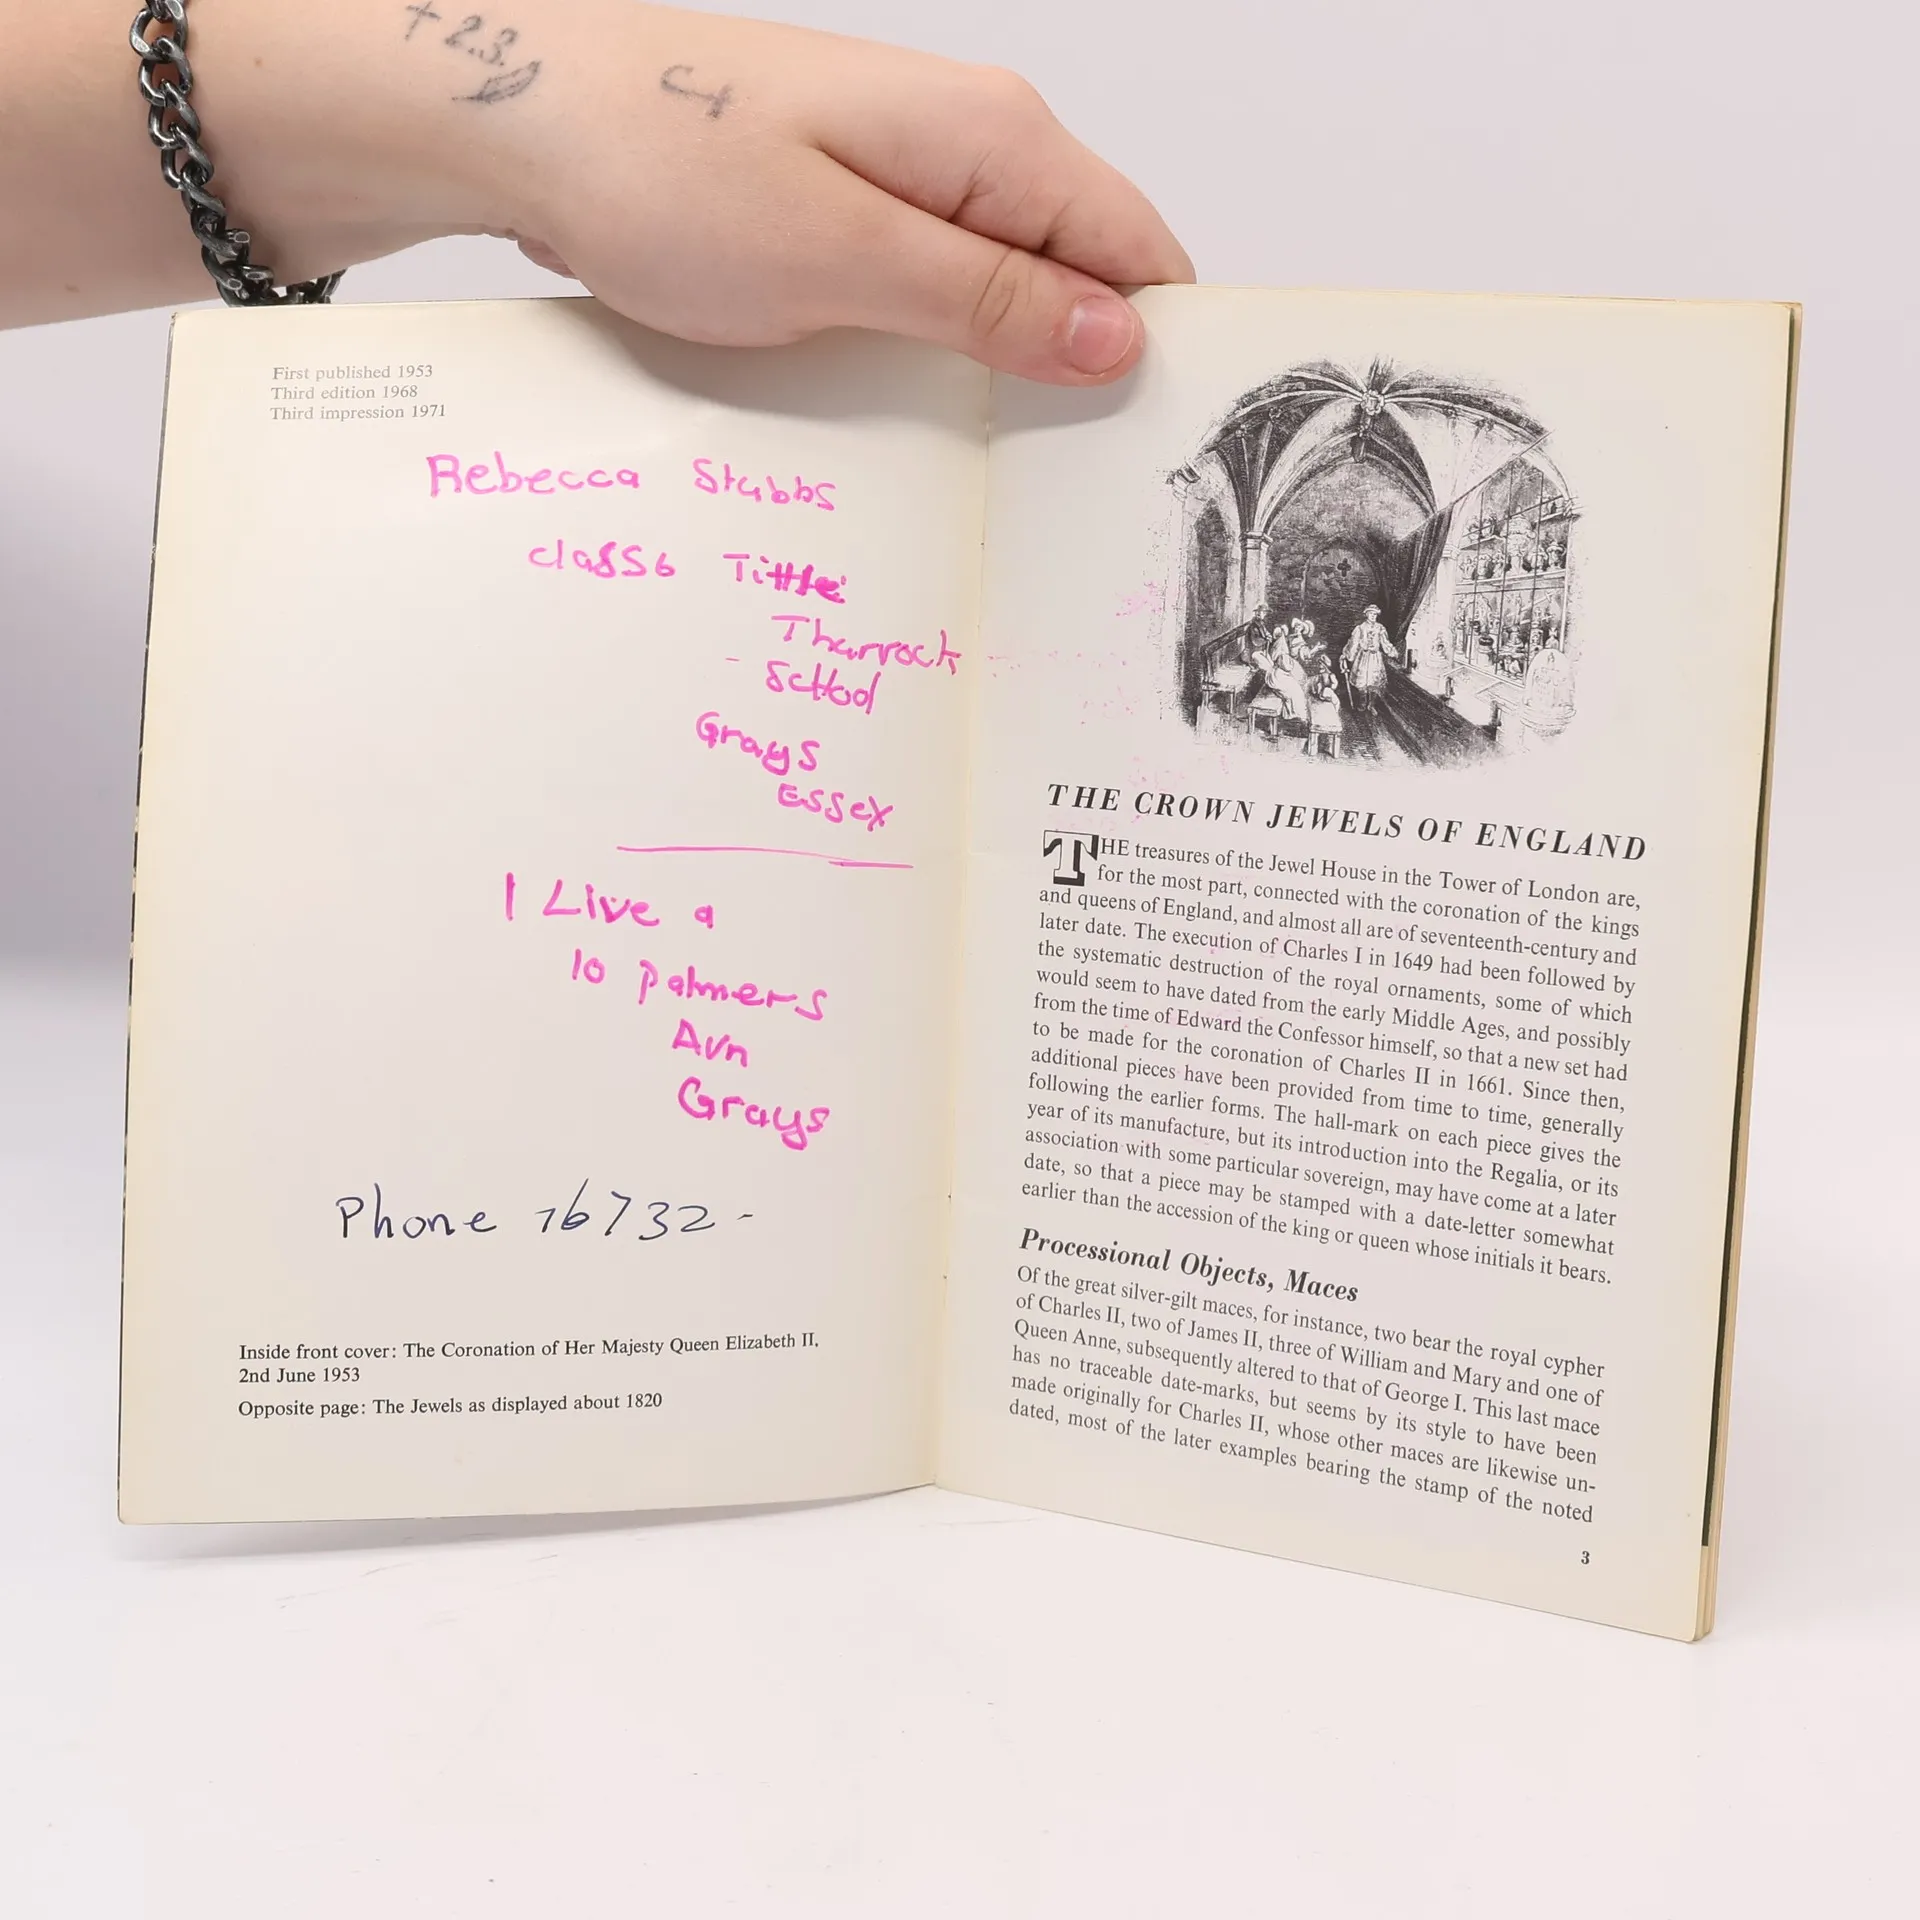 + 2.3.
First published 1953
Third edition 1968
Third impression 1971
Rebecca Stubbs
class 6 Tittle
Thurrock
- School
Grays
Essex
I Live a
10 palmers
Avn
Grays
Phone 76732-
Inside front cover: The Coronation of Her Majesty Queen Elizabeth II,
2nd June 1953
Opposite page: The Jewels as displayed about 1820
THE CROWN JEWELS OF ENGLAND
THE treasures of the Jewel House in the Tower of London are,
for the most part, connected with the coronation of the kings
and queens of England, and almost all are of seventeenth-century and
later date. The execution of Charles I in 1649 had been followed by
the systematic destruction of the royal ornaments, some of which
would seem to have dated from the early Middle Ages, and possibly
from the time of Edward the Confessor himself, so that a new set had
to be made for the coronation of Charles II in 1661. Since then,
additional pieces have been provided from time to time, generally
following the earlier forms. The hall-mark on each piece gives the
year of its manufacture, but its introduction into the Regalia, or its
association with some particular sovereign, may have come at a later
date, so that a piece may be stamped with a date-letter somewhat
earlier than the accession of the king or queen whose initials it bears.
Processional Objects, Maces
Of the great silver-gilt maces, for instance, two bear the royal cypher
of Charles II, two of James II, three of William and Mary and one of
Queen Anne, subsequently altered to that of George I. This last mace
has no traceable date-marks, but seems by its style to have been
made originally for Charles II, whose other maces are likewise un-
dated, most of the later examples bearing the stamp of the noted
3